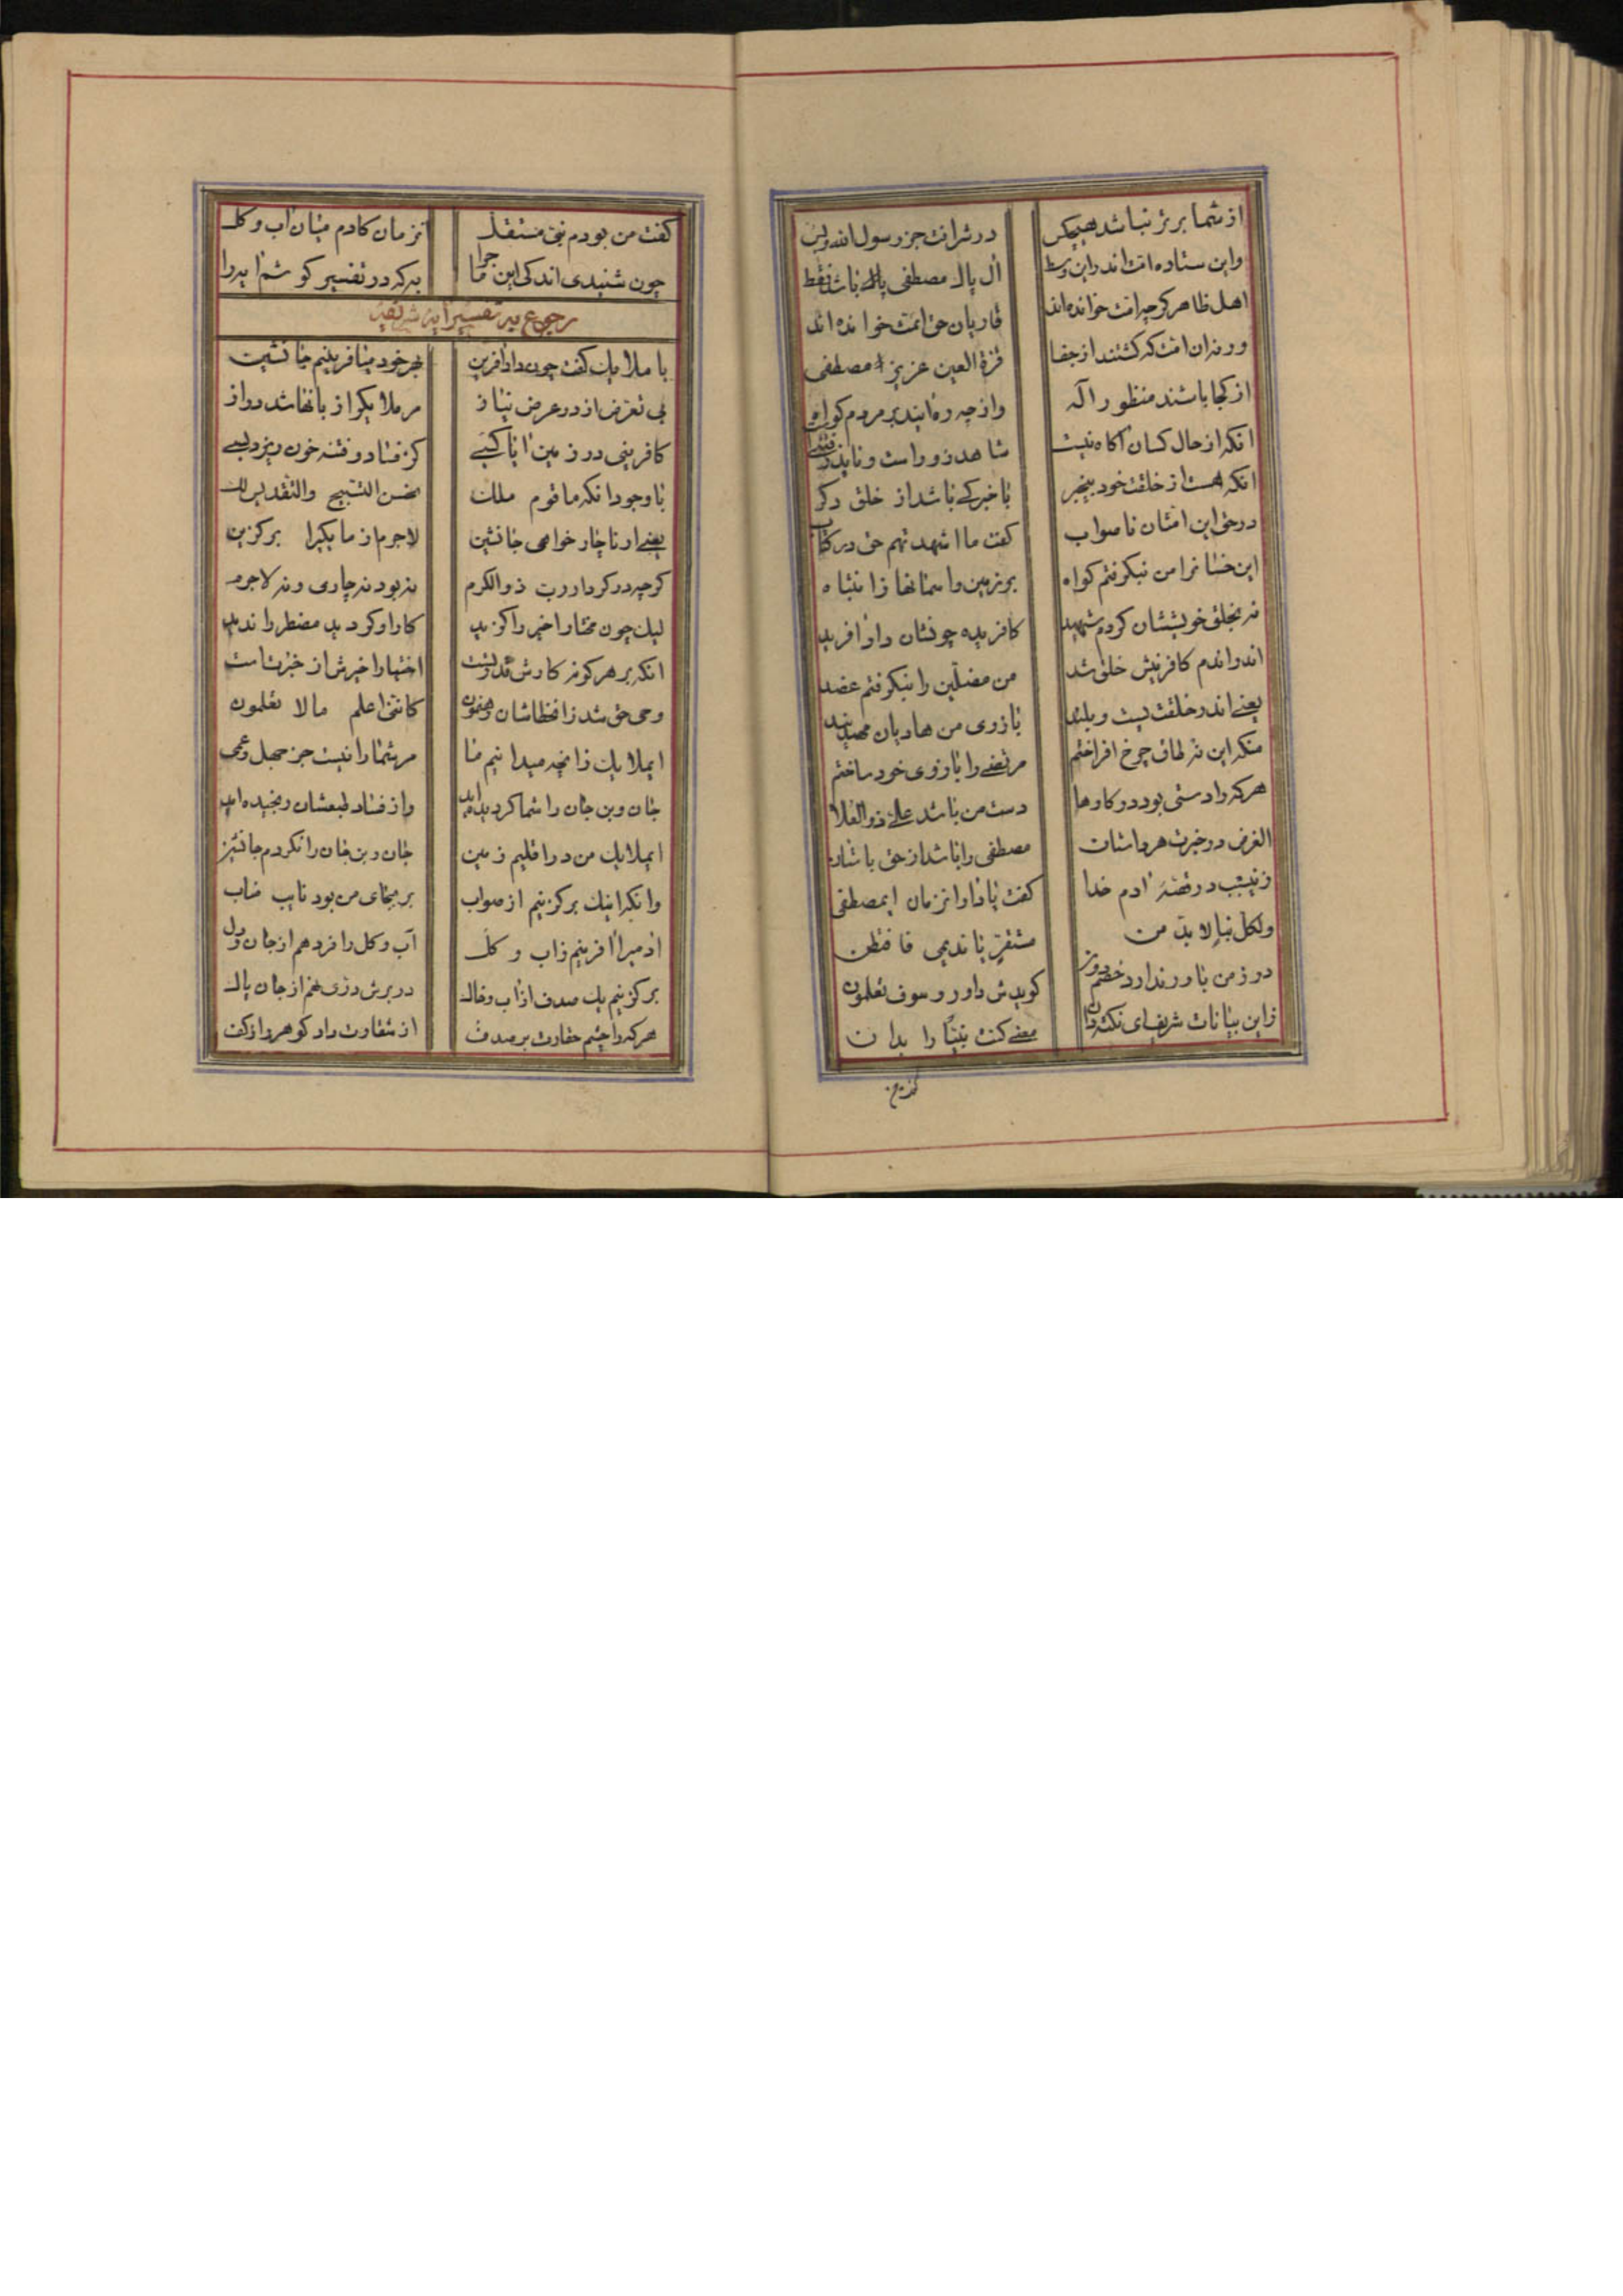 از شما برتر نباشد هیچکس	در شرافت جز رسول الله و بس
واین ستاده امت اند راین وسط	آل پاک مصطفی باشد فقط
اهل ظاهر کرچه امت خوانده اند	قاریان حق ائمت خوانده اند
ورنه ان امت که کشتند از جفا	قرة العین عزیز مصطفی
از کجا باشند منظور اله	واز چه ره ایند بر مردم کواه
انکه از حال کسان آکاه نیست	شاهد زور است و تایید
انکه هست از خلقت خود بیخبر	با خبر کی باشد از خلق دکر
در حق این امتان ناصواب	کفت ما اشهدتهم حق در کتاب
این خسانرا من نبکرفتم کواه	بر زمین و اسمانها ز انتباه
نه بخلق خویششان کردم شهید	کافریده چونشان داد افرید
اندراندم کافرینش خلق شد	من مضلین را نبکرفتم عضد
یعنی اندر خلقت پست و بلند	بازوی من هادیان مهتدیند
منکه این نه طاق چرخ افراختم	مرتضی را بازوی خود ساختم
هر که را دستی بود در کارها	دست من باشد علی ذو العلا
الغرض در خبرت هر داستان	مصطفی را باشد از حق
زینسبب در قصهٔ آدم خدا	کفت یاد ار انزمان ایمصطفی
ولکل نبإ لا بد من	مستقر یا ندیمی فافتطن
در ز من باور ندارد خصم دون	کویدش داور و سوف تعلمون
زاین بیانات شریف ای نکته دان	معنی کنت نبیا را بدان
کفت من بودم نبی مستقل	انزمان کادم میان آب و کل
چون شنیدی اندکی این ماجرا	به که در تفسیر کوشم ایه را
رجوع به تفسیر آیه شریفه
با ملایک کفت چون داد آفرین	بهر خود میافرینم جانشین
بی تعرض از در عرض نیاز	مر ملایکرا زبانها شد دراز
کافرینی در زمین آیا کسی	کز فساد و فتنه خون ریزد بسی
با وجود انکه ما قوم ملک	نحسن التسبیح والتقدیس لک
یعنی ار ناچار خواهی جانشین	لاجرم از ما یکیرا برکزین
کرچه در کردار رب ذو الکرم	نه بود نه چاری و نه لاجرم
لیک چون مختار اخیر را کزید	کار او کردید مضطر را ندید
انکه بر هر کونه کارش قدرتست	اختیار اخیرش از خبرت است
وحی حق شد زانخطاشان رهنمون	کاننی اعلم ما لا تعلمون
ایملایک زانچه میدانیم ما	مر شما را نیست جز جهل و عمی
جان و بن جان را شما کردیده اید	واز فساد طبعشان رنجیده اید
ایملایک من در اقلیم زمین	جان و بن جان را نکردم جانشین
وانکه اینک برکزینم از صواب	بر بجای من بود نایب مناب
ادمیرا افرینم ز اب و کل	آب و کل را فر دهم از جان و دل
برکزینم یک صدف از آب و خاک	در برش دری نهم از جان پاک
هر که را چشم حقارت بر صدف	از شقاوت داد کوهر را ز کف